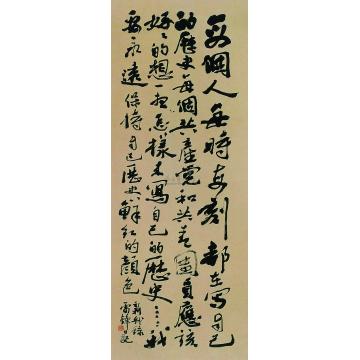 每個人每時每刻都在写自己
的歷史每個共產党和共青團員應該
好々的想一想怎樣来寫自己的歷史……我
要永遠保持自己歷史鮮紅的顏色
雷鋒